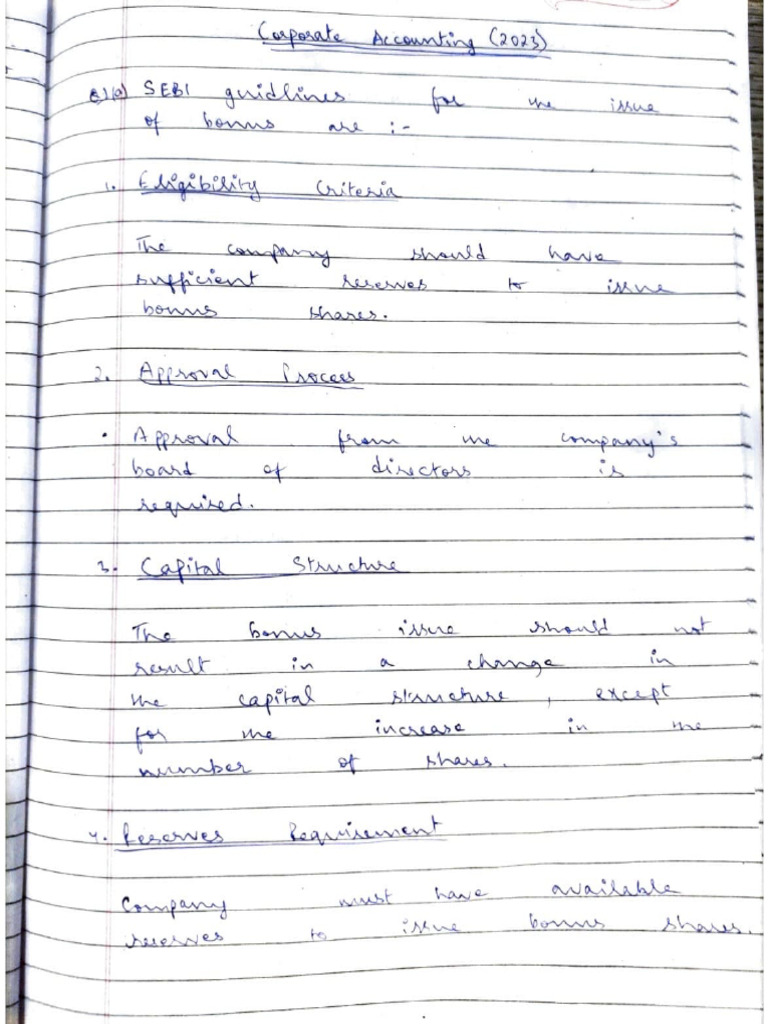 Corporate Accounting (2023)
Q1(a) SEBI guidlines for the issue
of bonus are :-
1. Eligibility Criteria
The company should have
sufficient reserves to issue
bonus shares.
2. Approval Process
• Approval from the company's
board of directors is
required.
3. Capital Structure
The bonus issue should not
result in a change in
the capital structure, except
for the increase in the
number of shares.
4. Reserves Requirement
Company must have available
reserves to issue bonus shares.